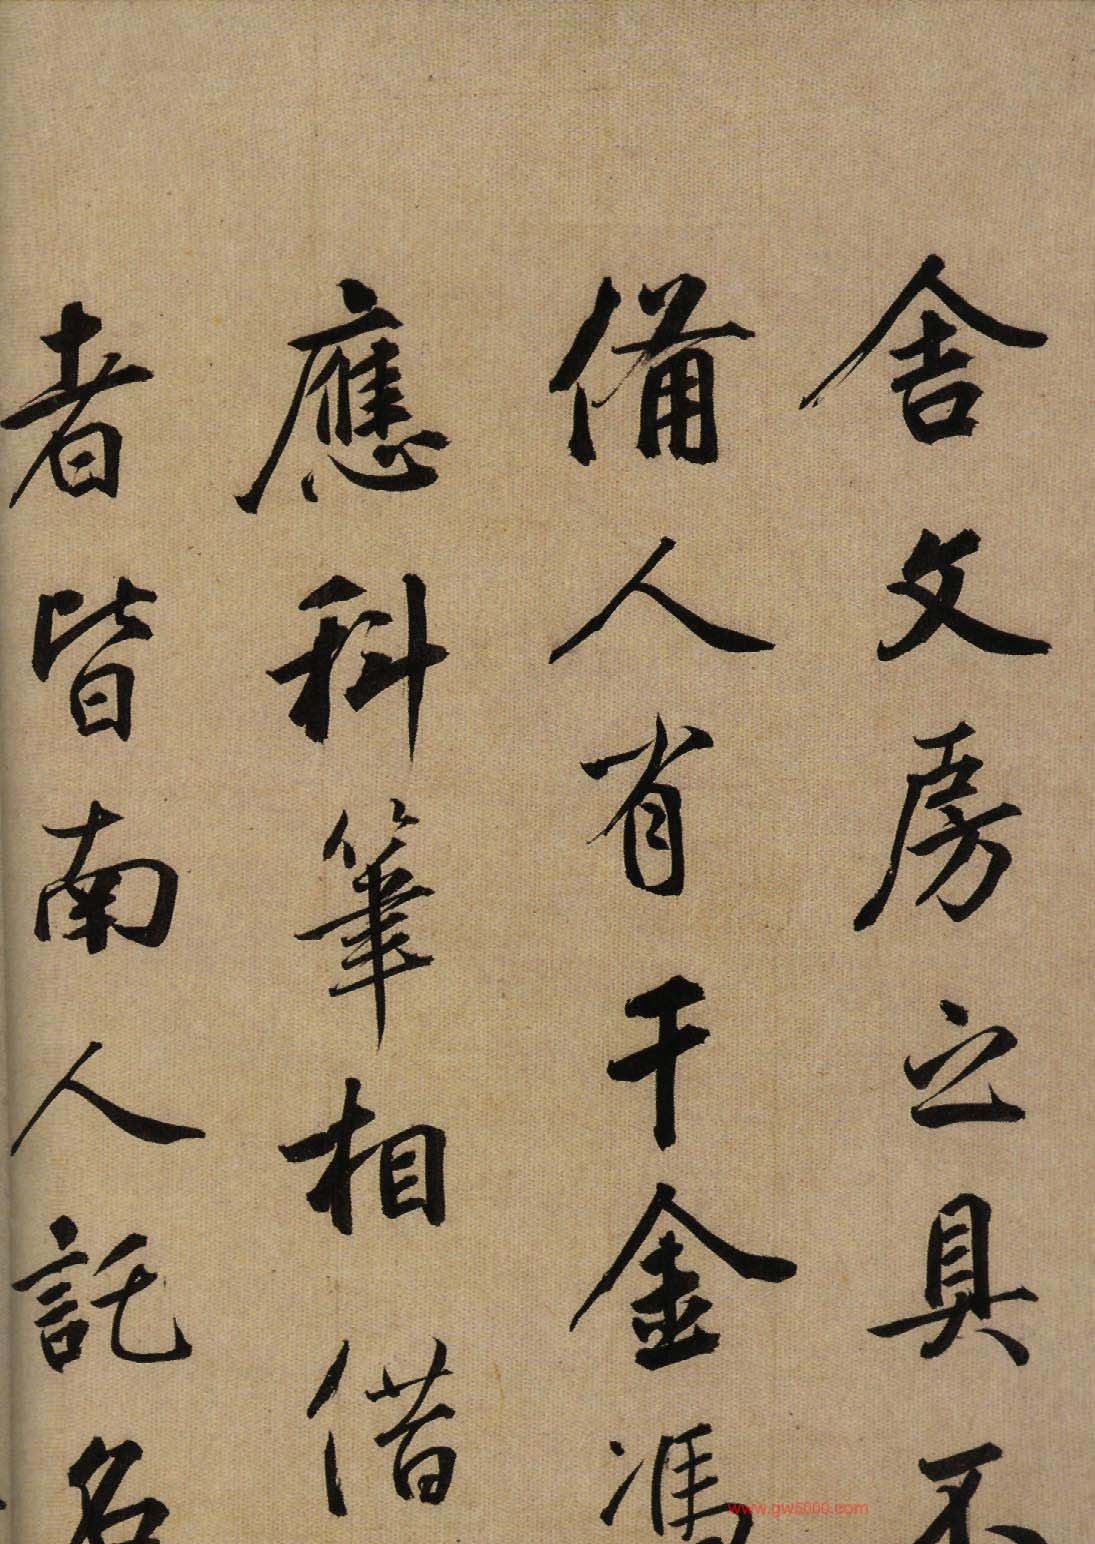 舍文房之具不
備人有千金馮
應科筆相借
者皆南人託名
www.gw5000.com